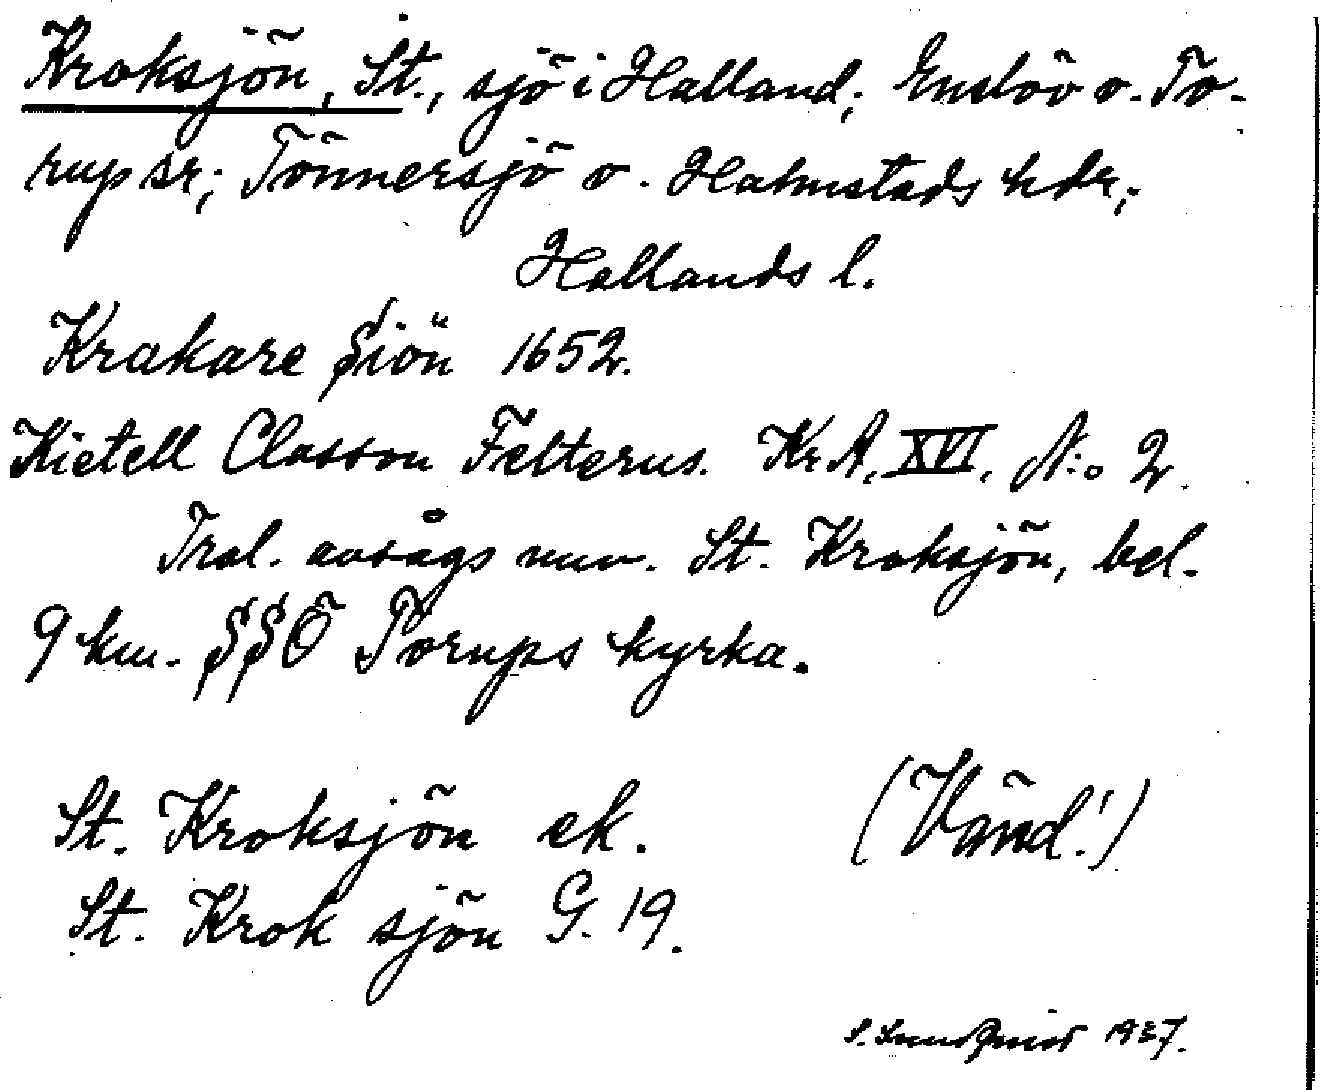 Kroksjön, St., sjö i Halland; Enslöv o. To-
rup sr; Tönnersjö o. Halmstads hdr;
Hallands l.
Krakare Siön 1652.
Kietell Classon Felterus. Kr A. XVI. N:o 2.
Trol. avsågs nuv. St. Kroksjön, bel.
9 km. SSÖ Torups kyrka.
St. Kroksjön ek. (Vänd!)
St. Krok sjön G. 19.
S. Sundqvist 1937.